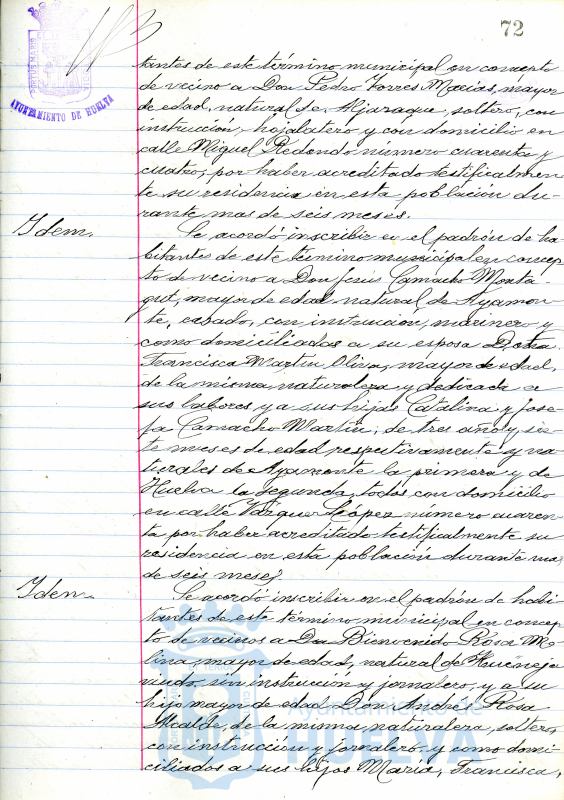 72
AYUNTAMIENTO DE HUELVA
tantes de este término municipal en concepto
de vecino a Don Pedro Torres Macías, mayor
de edad, natural de Aljaraque, soltero, con
instrucción, hojalatero y con domicilio en
calle Miguel Redondo número cuarenta y
cuatro, por haber acreditado testificalmen
te su residencia en esta población du-
rante mas de seis meses.
Idem.
Se acordó inscribir en el padrón de ha-
bitantes de este término municipal en concep
to de vecino a Don Jesús Camacho Monta-
gut, mayor de edad natural de Ayamon
te, casado, con instrucion, marinero y
como domiciliados a su esposa Doña
Francisca Martín Oliva, mayor de edad,
de la misma naturaleza y dedicada a
sus labores y a sus hijas Catalina y Jose
fa Camacho Martín, de tres año y sie
te meses de edad respectivamente y na-
turales de Ayamonte la primera y de
Huelva la segunda, todos con domicilio
en calle Vázquez López número cuaren
ta por haber acreditado testifialmente su
residencia en esta población durante mas
de seis meses
Idem.
Se acordó inscribir en el padrón de habi-
tantes de este término municipal en concep
to de vecinos a Don Bienvenido Rosa Mo
lina, mayor de edad, natural de Hueneja
viudo, sin instrucción y jornalero, y a su
hijo mayor de edad Don Andrés Rosa
Alcalde, de la misma naturaleza, soltero,
con instrucción y jornalero y como domi-
ciliados a sus hijos María, Francisca,
Ayuntamiento de
HUELVA